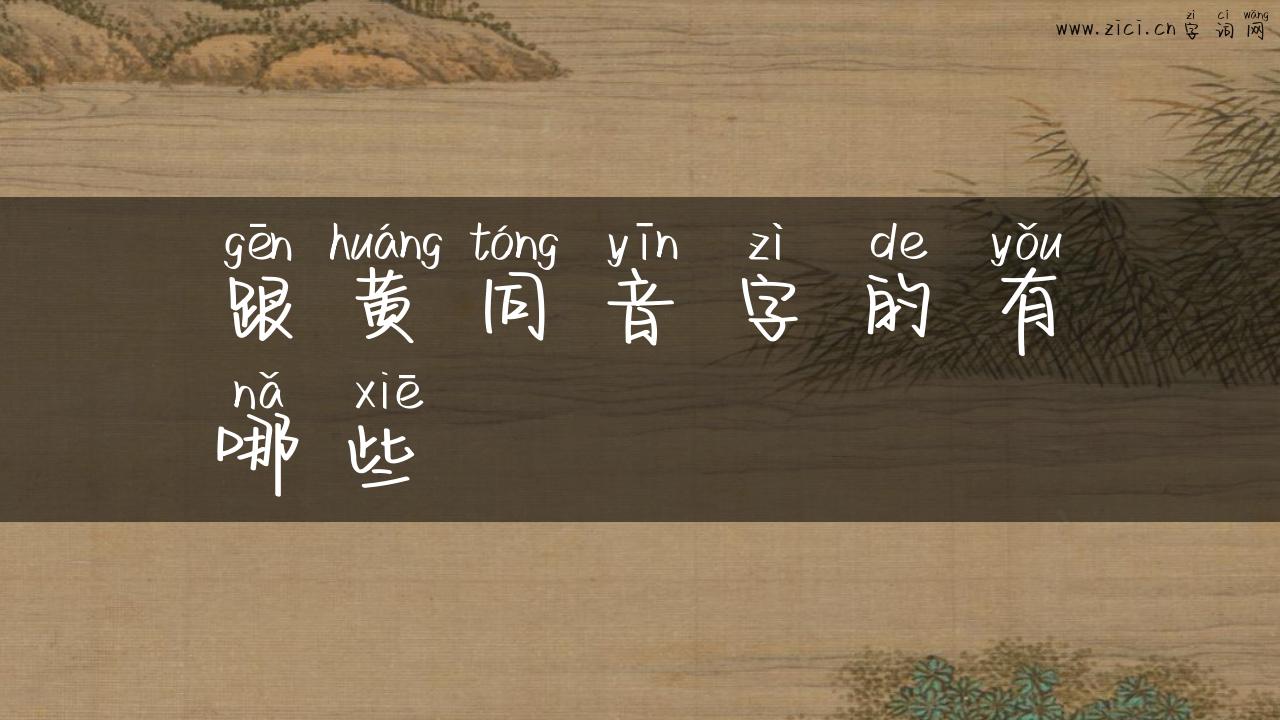 www.zici.cn 字词网
zì cí wǎng
gēn huáng tóng yīn zì de yǒu
跟黄同音字的有
nǎ xiē
哪些